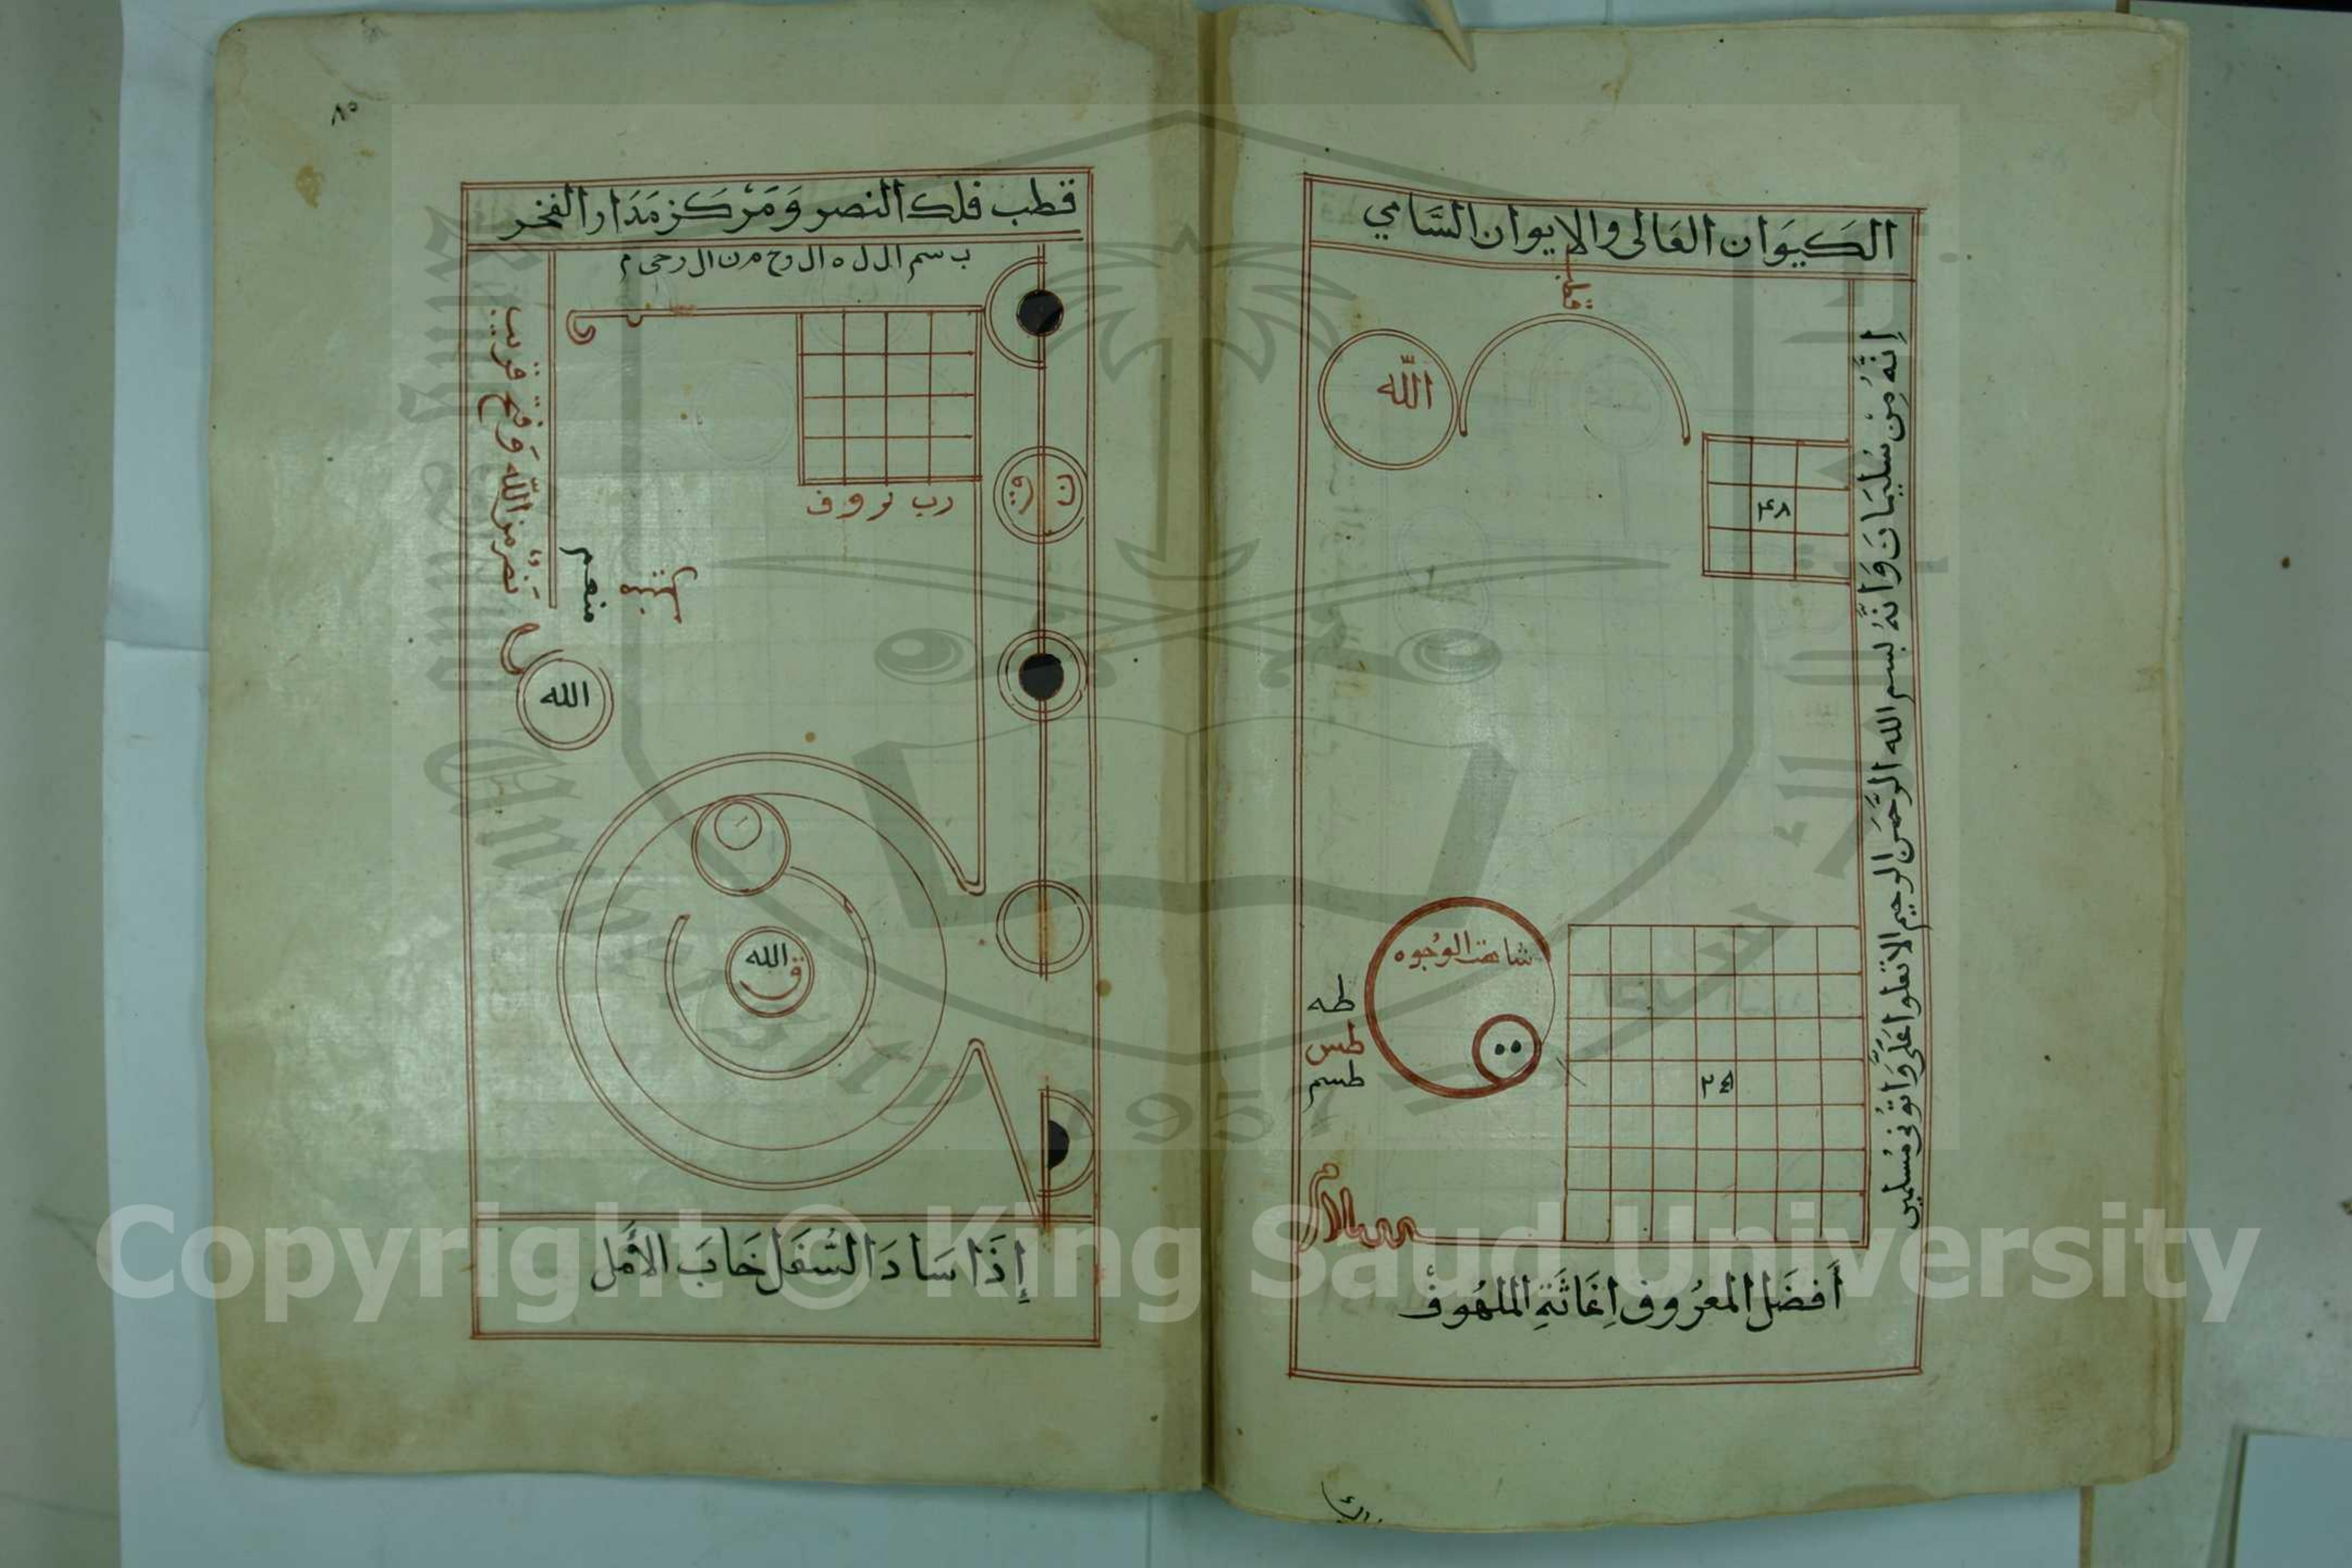 الكَيوَان العَالى والايوان السَّامي
قطب
اللّه
إِنَّهُ مِنْ سُلَيمَانَ وَانَّهُ بسم الله الرَّحمَن الرحيم الا تعلوا عَلَىَّ وَاتوُنى مُسلمين
شاهت الوُجوُه
طه
طس
طسم
أفضَل المعرُوف اِغَاثَةِ الملهُوفْ
٨٥
قطب فلك النصر وَمَرْكَز مَدَار الفخر
ب سم ال ل ه ال رح م ن ال رحى م
نَصْرٌ من اللّه وَفتح قريب
ن
ق
رب ن و و ف
منعم
الله
الله
ق
إِذَا سَادَ السُّفَل خَابَ الأَمل
Copyright © King Saud University
King Saud University
1957